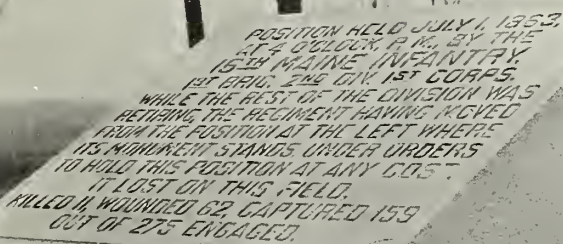 POSITION HELD JULY 1, 1863,
AT 4 O'CLOCK, P. M., BY THE
16TH MAINE INFANTRY,
1ST BRIG. 2ND DIV. 1ST CORPS.
WHILE THE REST OF THE DIVISION WAS
RETIRING, THE REGIMENT HAVING MOVED
FROM THE POSITION AT THE LEFT WHERE
ITS MONUMENT STANDS, UNDER ORDERS
TO HOLD THIS POSITION AT ANY COST.
IT LOST ON THIS FIELD,
KILLED 11, WOUNDED 62, CAPTURED 159
OUT OF 275 ENGAGED.